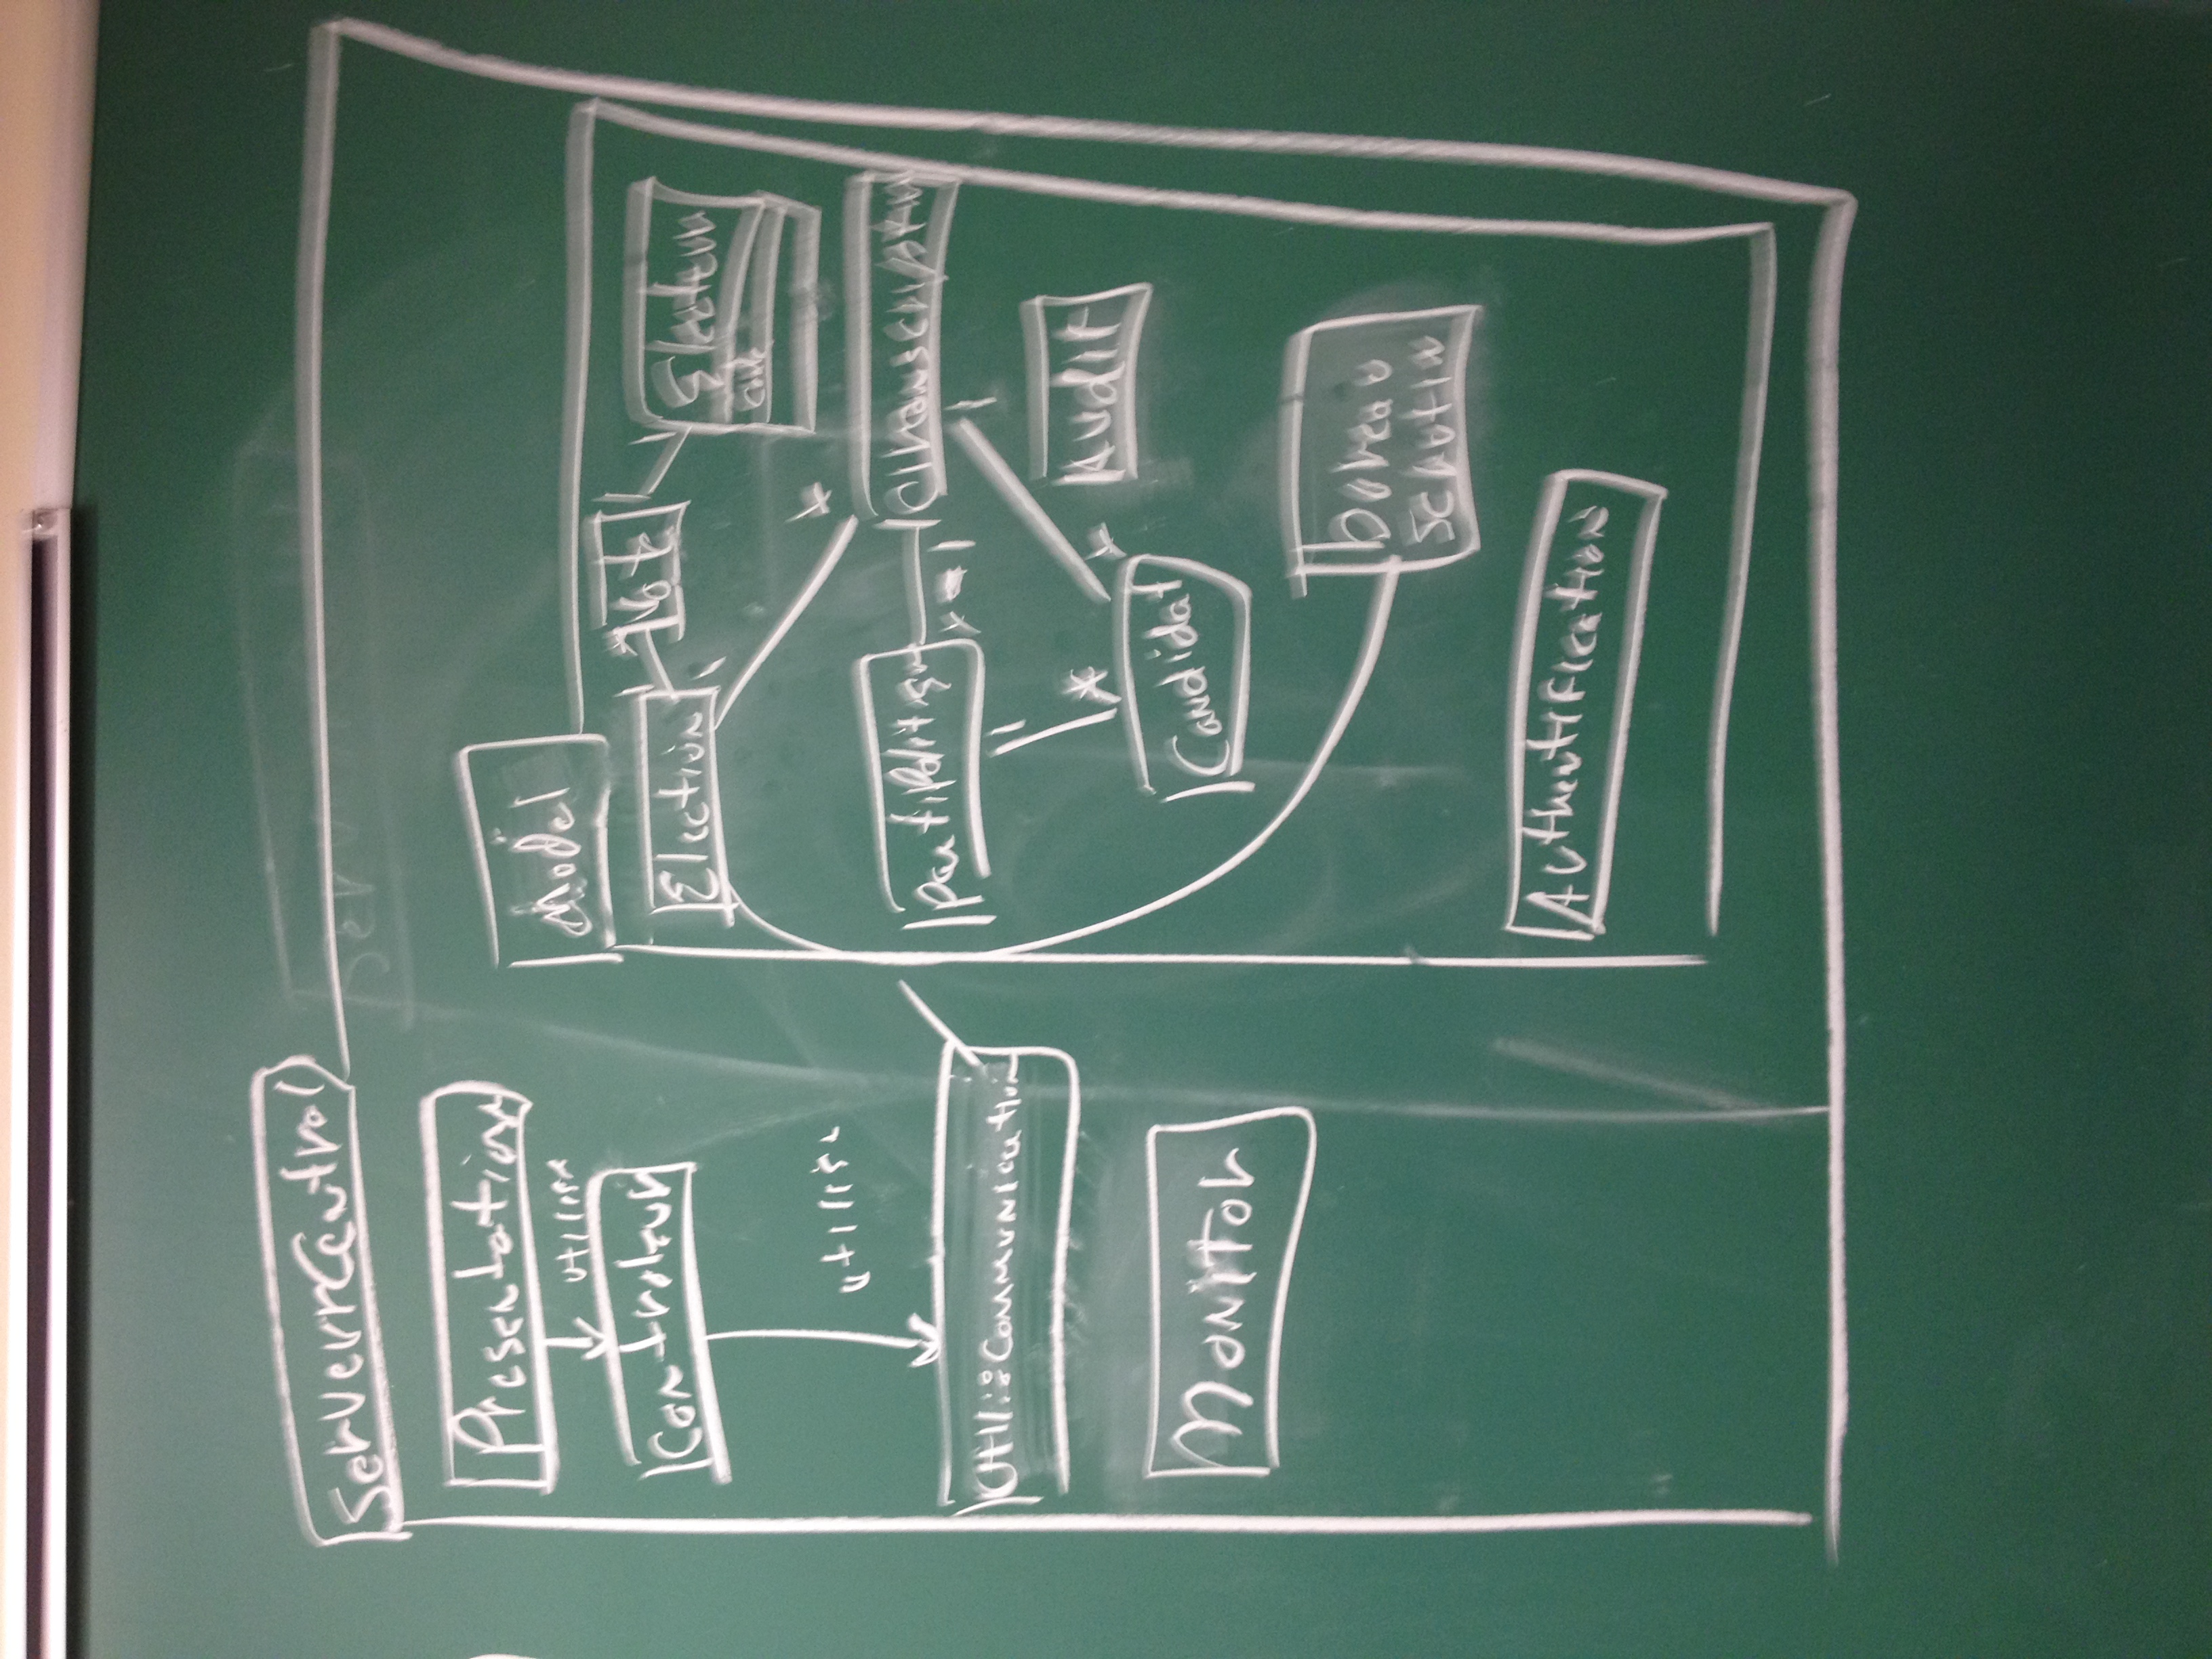 ServeurCentral
Presentation
utilise
Controleur
utilise
Util::Communication
Monitor
Model
Election
1
*
Vote
1
1
Electeur
code
1
*
PartiPolitique
*
1
Circonscription
1
*
1
*
Audit
Candidat
bureau
scrutin
Authentification